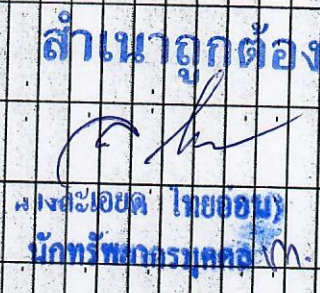 สำเนาถูกต้อง
นางละเอียด ไทยอ่อน)
นักทรัพยากรบุคคล